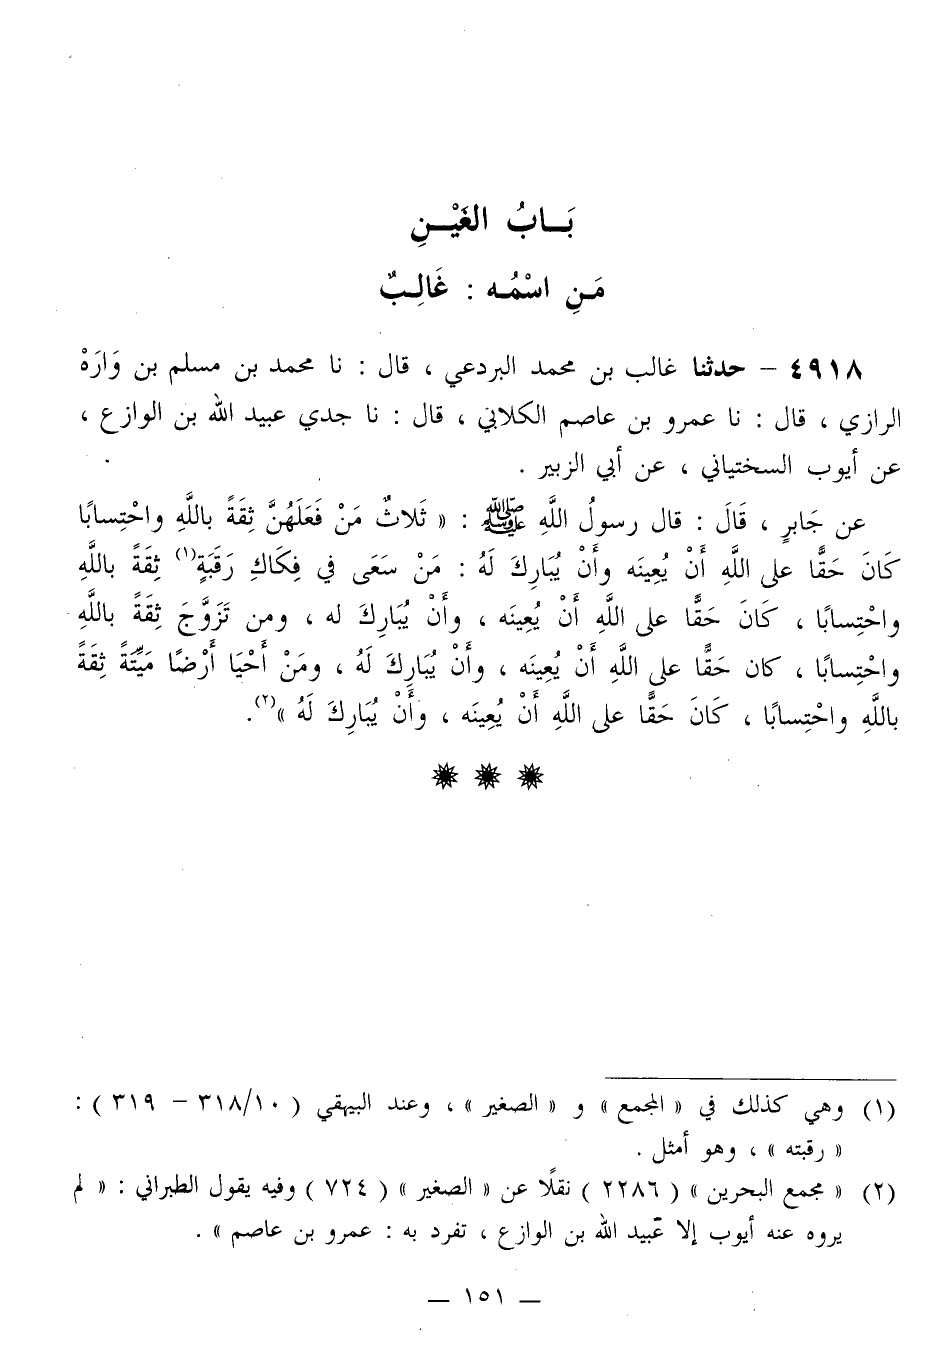 بَــابُ الغَيْــنِ
مَـنِ اسْمُـه : غَالِـبٌ
٤٩١٨ – حدثنا غالب بن محمد البردعي ، قال : نا محمد بن مسلم بن وَارَهْ
الرازي ، قال : نا عمرو بن عاصم الكلابي ، قال : نا جدي عبيد الله بن الوازع ،
عن أيوب السختياني ، عن أبي الزبير .
عن جَابرٍ ، قَالَ : قال رسولُ اللَّهِ ﷺ : « ثَلاثٌ مَنْ فَعَلَهُنَّ ثِقَةً باللَّهِ واحْتِسابًا
كَانَ حَقًّا على اللَّهِ أَنْ يُعِينَه وأَنْ يُبَارِكَ لَهُ : مَنْ سَعَى في فِكَاكِ رَقَبَةٍ(١) ثِقَةً باللَّهِ
واحْتِسابًا ، كَانَ حَقًّا على اللَّهِ أَنْ يُعِينَه ، وأَنْ يُبَارِكَ له ، ومن تَزَوَّجَ ثِقَةً باللَّهِ
واحْتِسابًا ، كان حَقًّا على اللَّهِ أَنْ يُعِينَه ، وأَنْ يُبَارِكَ لَهُ ، ومَنْ أَحْيَا أَرْضًا مَيِّتَةً ثِقَةً
باللَّهِ واحْتِسابًا ، كَانَ حَقًّا على اللَّهِ أَنْ يُعِينَه ، وأَنْ يُبَارِكَ لَهُ »(٢).
(١) وهي كذلك في « المجمع » و « الصغير » ، وعند البيهقي ( ٣١٨/١٠ – ٣١٩ ) :
« رقبته » ، وهو أمثل .
(٢) « مجمع البحرين » ( ٢٢٨٦ ) نقلًا عن « الصغير » ( ٧٢٤ ) وفيه يقول الطبراني : « لم
يروه عنه أيوب إلا عبيد الله بن الوازع ، تفرد به : عمرو بن عاصم » .
— ١٥١ —